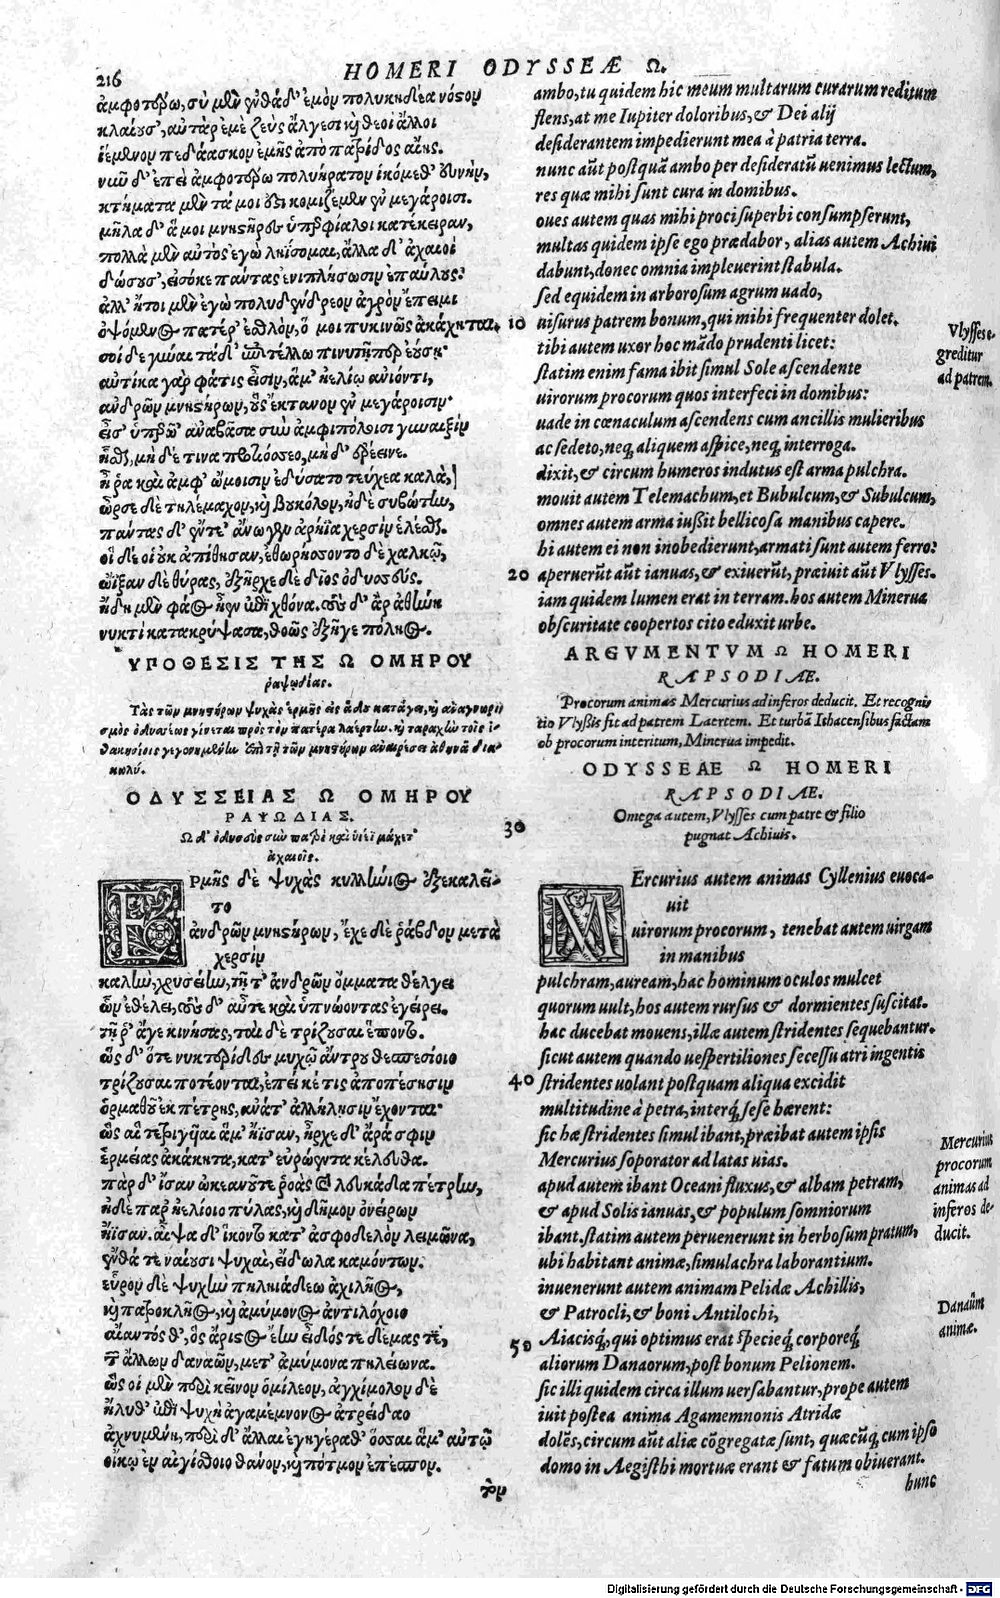 216
HOMERI ODYSSEÆ Ω.
ἀμφοτέρω, σὺ μὲν ἐνθάδ' ἐμὸν πολυκηδέα νόστον
κλαίουσ', αὐτὰρ ἐμὲ ζεὺς ἄλγεσι καὶ θεοὶ ἄλλοι
ἱέμενον πεδάασκον ἐμῆς ἀπὸ πατρίδος αἴης.
νῦν δ' ἐπεὶ ἀμφοτέρω πολυήρατον ἱκόμεθ' εὐνὴν,
κτήματα μὲν τά μοι ἐστὶ κομιζέμεν ἐν μεγάροισι.
μῆλα δ' ἅ μοι μνηστῆρες ὑπερφίαλοι κατέκειραν,
πολλὰ μὲν αὐτὸς ἐγὼ ληίσομαι, ἄλλα δ' ἀχαιοὶ
δώσουσ', εἰσόκε πάντας ἐνιπλήσωσιν ἐπαύλους·
ἀλλ' ἤτοι μὲν ἐγὼ πολυδένδρεον ἀγρὸν ἔπειμι
ὀψόμενος πατέρ' ἐσθλὸν, ὅ μοι πυκινῶς ἀκάχηται.
σοὶ δὲ γύναι τάδ' ἐπιτέλλω πινυτῇ περ ἐούσῃ·
αὐτίκα γὰρ φάτις εἶσιν, ἅμ' ἠελίῳ ἀνιόντι,
ἀνδρῶν μνηστήρων, οὓς ἔκτανον ἐν μεγάροισιν·
εἰς ὑπερῷ' ἀναβᾶσα σὺν ἀμφιπόλοισι γυναιξὶν
ἧσθαι, μηδέ τινα προτιόσσεο, μηδ' ἐρέεινε.
ἦ ῥα καὶ ἀμφ' ὤμοισιν ἐδύσατο τεύχεα καλὰ,
ὦρσε δὲ τηλέμαχον, καὶ βουκόλον, ἠδὲ συβώτην,
πάντας δ' ἔντε' ἄνωγεν ἀρήϊα χερσὶν ἑλέσθαι.
οἱ δέ οἱ οὐκ ἀπίθησαν, ἐθωρήσσοντο δὲ χαλκῷ,
ὤϊξαν δὲ θύρας, ἐξῆρχε δὲ δῖος ὀδυσσεύς.
ἤδη μὲν φάος ἦεν ἐπὶ χθόνα. τοὺς δ' ἄρ ἀθήνη
νυκτὶ κατακρύψασα, θοῶς ἐξῆγε πόληος.
ΥΠΟΘΕΣΙΣ ΤΗΣ Ω ΟΜΗΡΟΥ
ῥαψῳδίας.
Τὰς τῶν μνηστήρων ψυχὰς ἑρμῆς εἰς ᾅδου κατάγει, καὶ ἀναγνωρι
σμὸς ὀδυσσέως γίνεται πρὸς τὸν πατέρα λαέρτην. καὶ ταραχὴν τοῖς ἰ-
θακησίοις γεγονημένην ἐπὶ τῇ τῶν μνηστήρων ἀναιρέσει ἀθηνᾶ δια-
κωλύει.
ΟΔΥΣΣΕΙΑΣ Ω ΟΜΗΡΟΥ
ΡΑΨΩΔΙΑΣ.
Ω δ' ὀδυσεὺς σὺν πατρὶ καὶ υἱέϊ μάχετ'
ἀχαιοῖς.
ΕΡμῆς δὲ ψυχὰς κυλλήνιος ἐξεκαλεῖ-
το
ἀνδρῶν μνηστήρων, ἔχε δὲ ῥάβδον μετὰ
χερσὶν
καλὴν, χρυσείην, τῇ τ' ἀνδρῶν ὄμματα θέλγει
ὧν ἐθέλει, τοὺς δ' αὖτε καὶ ὑπνώοντας ἐγείρει.
τῇ ῥ' ἄγε κινήσας, ταὶ δὲ τρίζουσαι ἕποντο.
ὡς δ' ὅτε νυκτερίδες μυχῷ ἄντρου θεσπεσίοιο
τρίζουσαι ποτέονται, ἐπεί κέ τις ἀποπέσησιν
ὁρμαθοῦ ἐκ πέτρης, ἀνάτ' ἀλλήλησιν ἔχονται·
ὣς αἱ τετριγυῖαι ἅμ' ἤϊσαν, ἦρχε δ' ἄρά σφιν
ἑρμείας ἀκάκητα, κατ' εὐρώεντα κέλευθα.
πὰρ δ' ἴσαν ὠκεανοῦ τε ῥοὰς καὶ λευκάδα πέτρην,
ἠδὲ παρ' ἠελίοιο πύλας, καὶ δῆμον ὀνείρων
ἤϊσαν. αἶψα δ' ἵκοντο κατ' ἀσφοδελὸν λειμῶνα,
ἔνθά τε ναίουσι ψυχαὶ, εἴδωλα καμόντων.
εὗρον δὲ ψυχὴν πηληιάδεω ἀχιλῆος,
καὶ πατροκλῆος, καὶ ἀμύμονος ἀντιλόχοιο
αἴαντός θ', ὃς ἄριστος ἔην εἶδός τε δέμας τε,
τῶν ἄλλων δαναῶν, μετ' ἀμύμονα πηλείωνα.
ὣς οἱ μὲν περὶ κεῖνον ὁμίλεον, ἀγχίμολον δὲ
ἤλυθ' ἐπὶ ψυχὴ ἀγαμέμνονος ἀτρείδαο
ἀχνυμένη, περὶ δ' ἄλλαι ἐγηγέραθ' ὅσσαι ἅμ' αὐτῷ
οἴκῳ ἐν αἰγίσθοιο θάνον, καὶ πότμον ἐπέσπον.
τὴν
ambo, tu quidem hic meum multarum curarum reditum
flens, at me Iupiter doloribus, & Dei alij
desiderantem impedierunt mea à patria terra.
nunc aũt postquã ambo per desideratũ uenimus lectum,
res quæ mihi sunt cura in domibus.
oues autem quas mihi proci superbi consumpserunt,
multas quidem ipse ego prædabor, alias autem Achiui
dabunt, donec omnia impleuerint stabula.
sed equidem in arborosum agrum uado,
10 uisurus patrem bonum, qui mihi frequenter dolet.
tibi autem uxor hoc mãdo prudenti licet:
statim enim fama ibit simul Sole ascendente
uirorum procorum quos interfeci in domibus:
uade in cœnaculum ascendens cum ancillis mulieribus
ac sedeto, neq; aliquem aspice, neq; interroga.
dixit, & circum humeros indutus est arma pulchra.
mouit autem Telemachum, et Bubulcum, & Subulcum,
omnes autem arma iußit bellicosa manibus capere.
hi autem ei non inobedierunt, armati sunt autem ferro:
20 aperuerũt aũt ianuas, & exiuerũt, præiuit aũt Vlysses.
iam quidem lumen erat in terram. hos autem Minerua
obscuritate coopertos cito eduxit urbe.
ARGVMENTVM Ω HOMERI
RAPSODIÆ.
Procorum animas Mercurius ad inferos deducit. Et recogni
tio Vlyßis fit ad patrem Laertem. Et turbã Ithacensibus factam
ob procorum interitum, Minerua impedit.
ODYSSEAE Ω HOMERI
RAPSODIÆ.
Omega autem, Vlysses cum patre & filio
30 pugnat Achiuis.
MErcurius autem animas Cyllenius euoca-
uit
uirorum procorum, tenebat autem uirgam
in manibus
pulchram, auream, hac hominum oculos mulcet
quorum uult, hos autem rursus & dormientes suscitat.
hac ducebat mouens, illæ autem stridentes sequebantur.
sicut autem quando uespertiliones secessu atri ingentis
40 stridentes uolant postquam aliqua excidit
multitudine à petra, interq; sese hærent:
sic hæ stridentes simul ibant, præibat autem ipsis
Mercurius soporator ad latas uias.
apud autem ibant Oceani fluxus, & albam petram,
& apud Solis ianuas, & populum somniorum
ibant. statim autem peruenerunt in herbosum pratum,
ubi habitant animæ, simulachra laborantium.
inuenerunt autem animam Pelidæ Achillis,
& Patrocli, & boni Antilochi,
50 Aiacisq;, qui optimus erat specieq; corporeq;
aliorum Danaorum, post bonum Pelionem.
sic illi quidem circa illum uersabantur, prope autem
iuit postea anima Agamemnonis Atridæ
dolẽs, circum aũt aliæ cõgregatæ sunt, quæcũq; cum ipso
domo in Aegisthi mortuæ erant & fatum obiuerant.
hunc
Vlysses e-
greditur
ad patrem.
Mercurius
procorum
animas ad
inferos de-
ducit.
Danaûm
animæ.
Digitalisierung gefördert durch die Deutsche Forschungsgemeinschaft - DFG